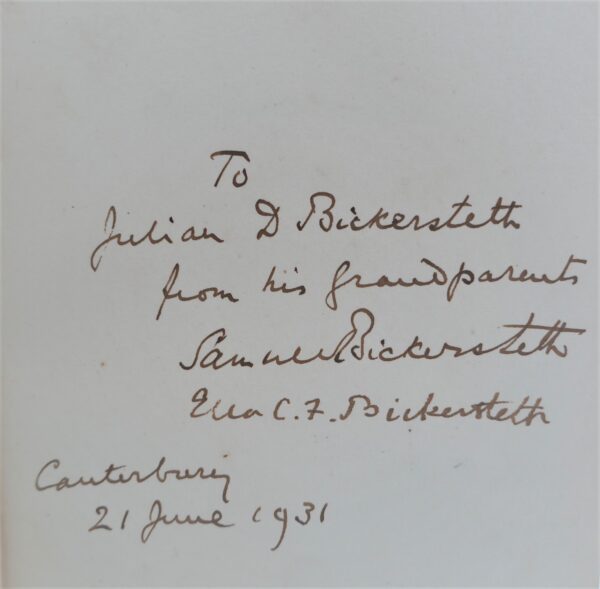 To
Julian D Bickersteth
from his grandparents
Samuel Bickersteth
Ella C. F. Bickersteth
Canterbury
21 June 1931